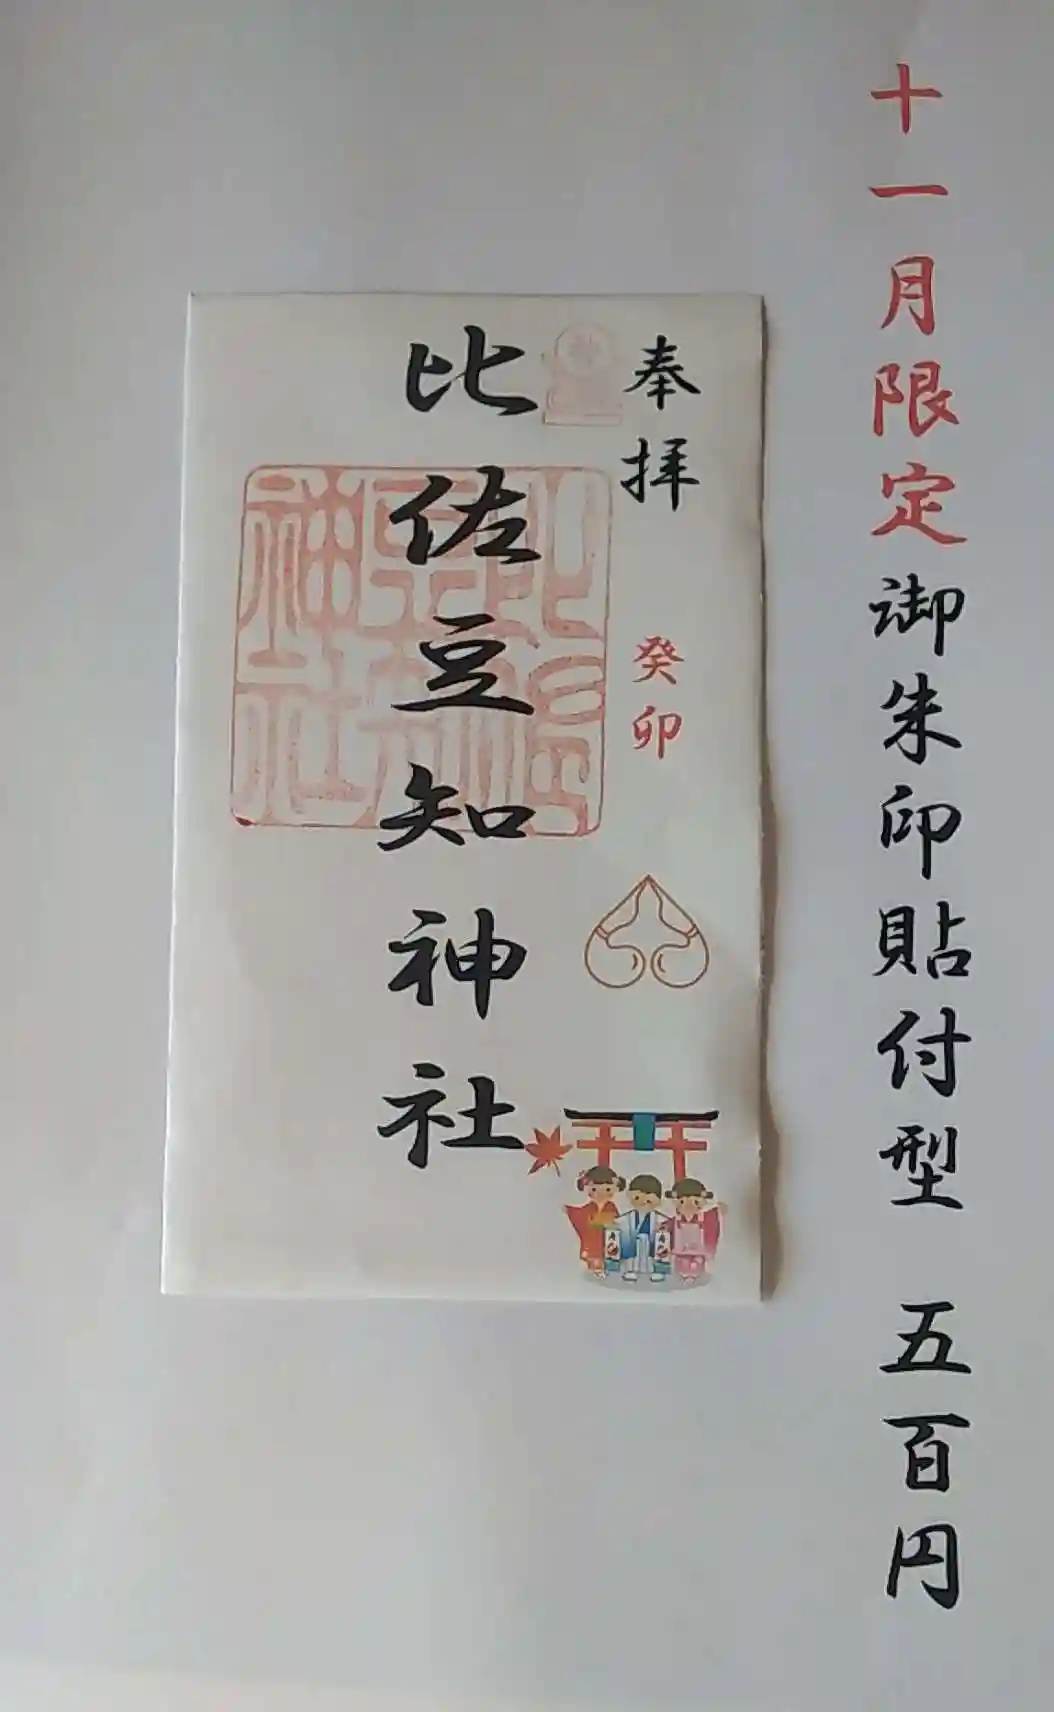 十一月限定御朱印貼付型 五百円
奉拝
癸卯
比佐豆知神社